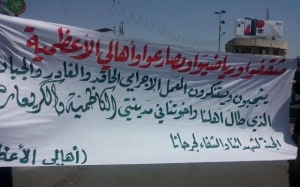 مثقفو ورياضيو ومصارعو وأهالي الأعظمية
يشجبون ويستنكرون العمل الاجرامي الحاقد والغادر والجبان
الذي طال اهلنا واخوتنا في مدينتي الكاظمية والكريعات
الجنة لشهدائنا والشفاء لجرحانا
(أهالي الأعظ